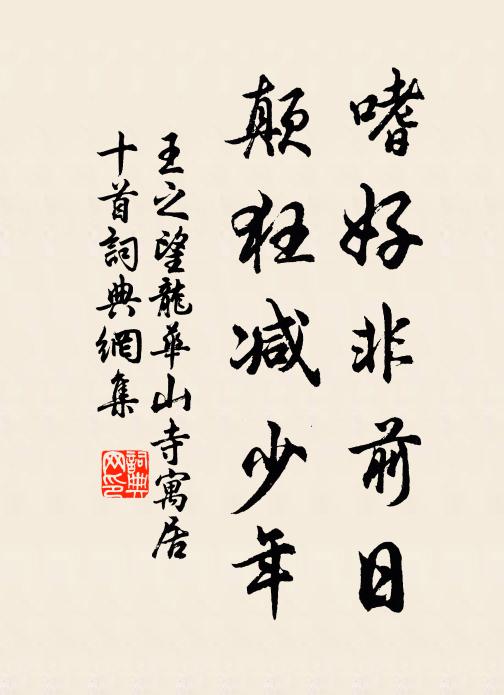 嗜好非前日
颠狂减少年
王之望龍華山寺寓居
十首詞典網集
詞典
网印